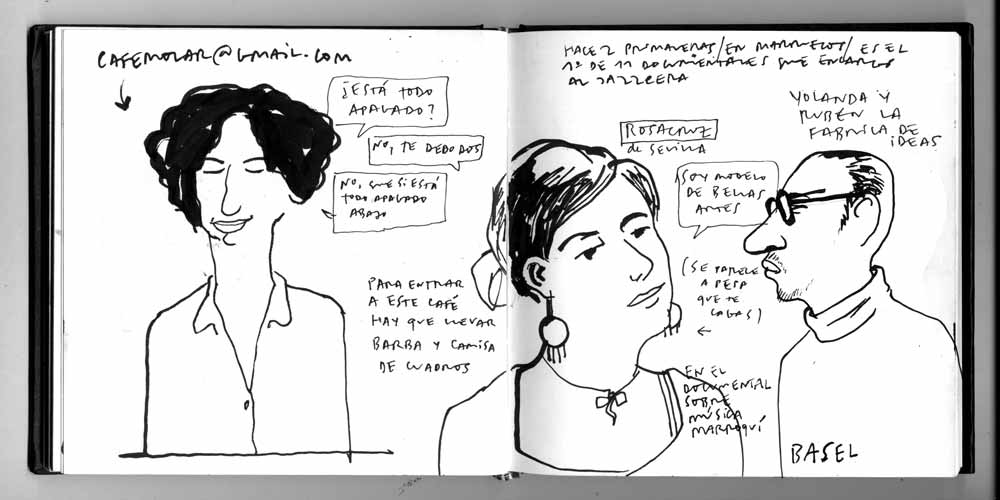 CAFEMOLAR@GMAIL.COM
¿ESTÁ TODO
APAGADO?
NO, TE DEDODOS
NO, QUE SI ESTÁ
TODO APAGADO
ABAJO
PARA ENTRAR
A ESTE CAFÉ
HAY QUE LLEVAR
BARBA Y CAMISA
DE CUADROS
HACE 2 PRIMAVERAS/EN MARRUECOS/ES EL
1º DE 11 DOCUMENTALES QUE ENCARGO
AL JAZZCERA
ROSACRUZ
de SEVILLA
YOLANDA Y
RUBÉN LA
FABRICA DE
iDEAS
SOY MODELO
DE BELLAS
ARTES
(SE PARECE
A PEPA
QUE TE
CAGAS)
EN EL
DOCUMENTAL
SOBRE
MÚSICA
MARROQUÍ
BASEL